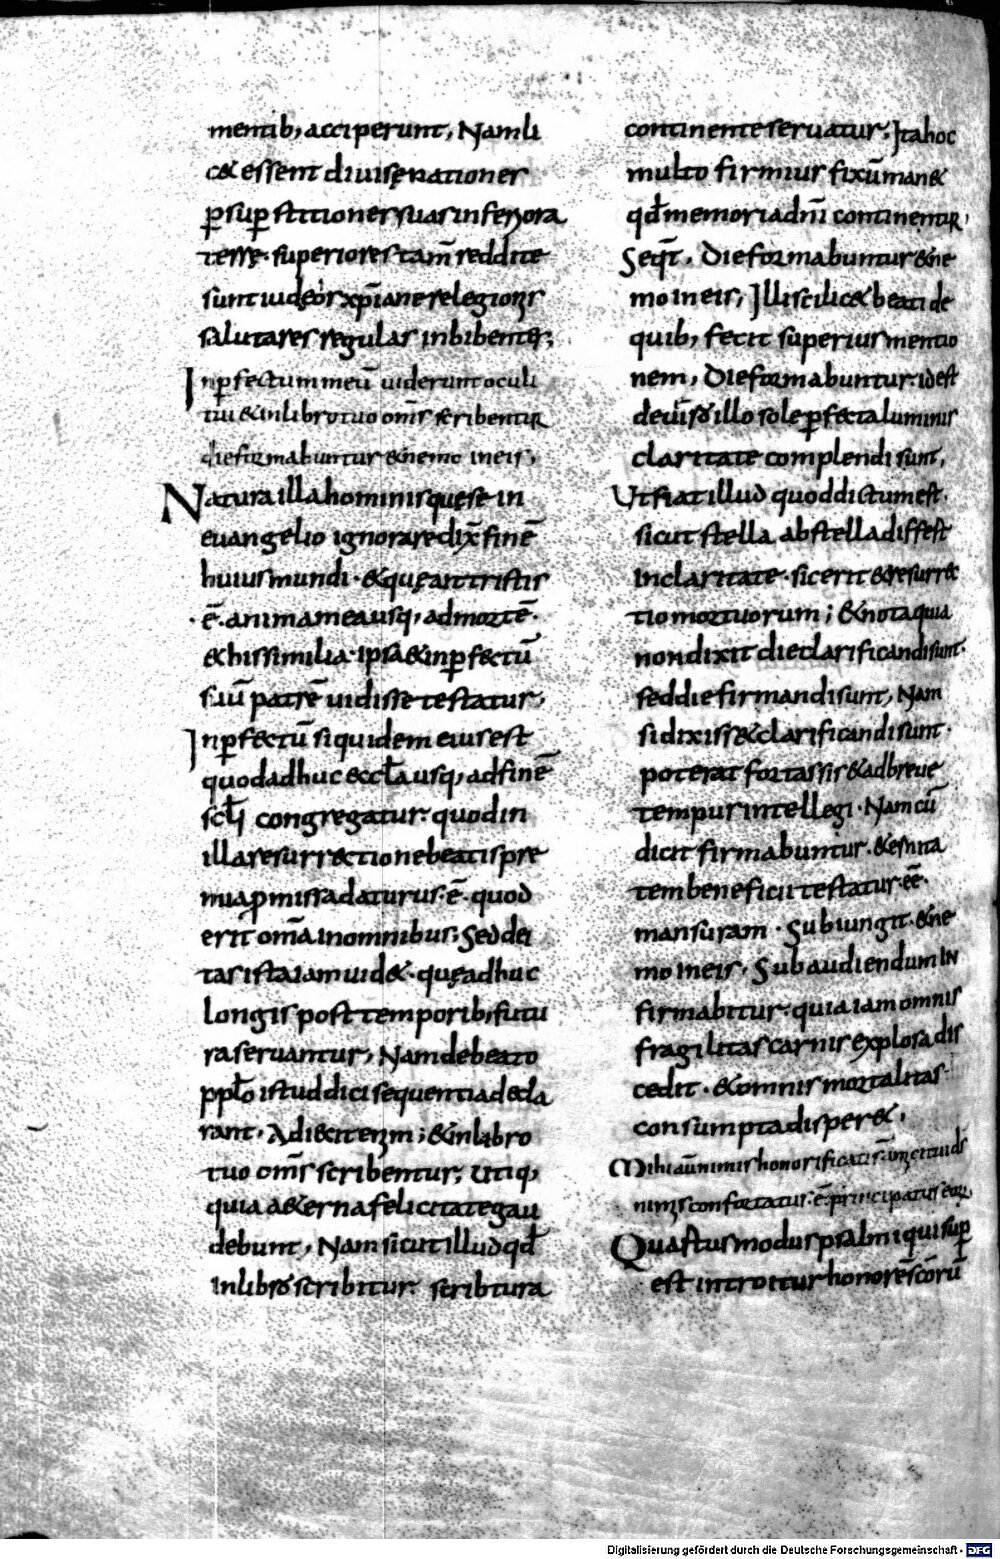 mentib; acciperunt, Namli
c& essent diuisę nationes
ꝑsuꝑstitiones suas inferiora
terrę. superiores tam̄ reddite
sunt uideor xp̄iane relegionis
salutares regulas inbibentes;
Inꝑfectum meū uiderunt oculi
tui & inlibro tuo om̄s scribentur
die formabuntur & nemo ineis,
Natura illa hominis quę se in
euangelio ignorare dix̄ finē
huius mundi. & quę ait tristis
ē. anima mea usq; ad mortē.
& his similia. ipsa & inꝑfectū
suū patrē uidisse testatur,
Inꝑfectū siquidem eius est
quod adhuc eccl̄a usq; ad finē
scl̄i congregatur. quod in
illa resurrectione beatis pre
mia ꝓmissa daturus. ē. quod
erit om̄a inomnibus; Sed dei
tas ista iam uid&. quę adhuc
longis post temporib; futu
ra seruantur, Nam de beato
ppl̄o istud dici sequentia decla
rant. Adiecit enim; & inlibro
tuo om̄s scribentur; Utiq;
quia a&erna felicitate gau
debunt, Nam sicut illud qd̄
inlibro scribitur. scribtura
continente seruatur; Ita hoc
multo firmius fixū man&
qd̄ memoria dn̄i continentur,
Seqt̄. Die formabuntur & ne
mo ineis, Illi scilic& beati de
quib; fecit superius mentio
nem, Die formabuntur. id est
de uiso illo sole ꝑfecta luminis
claritate complendi sunt,
Ut fiat illud quod dictum est.
sicut stella ab stella differt
in claritate. sic erit & resurrec
tio mortuorum; & nota quia
non dixit die clarificandi sunt.
sed die firmandi sunt, Nam
si dixiss& clarificandi sunt.
poterat fortassis & ad breue
tempus intellegi. Nam cū
dicit firmabuntur.
tem beneficii testatur. eē.
mansuram. Subiungit. & ne
mo ineis. Subaudiendum IN
firmabitur. quia iam omnis
fragilitas carnis explosa dis
cedit. & omnis mortalitas
consumpta disper&.
Mihi aū nimis honorificati s̄. amici tui d̄s
nimis confortatus. ē. principatus eoꝝ
Quastus modus psalmi qui suꝑ
est introitur honore sc̄orū